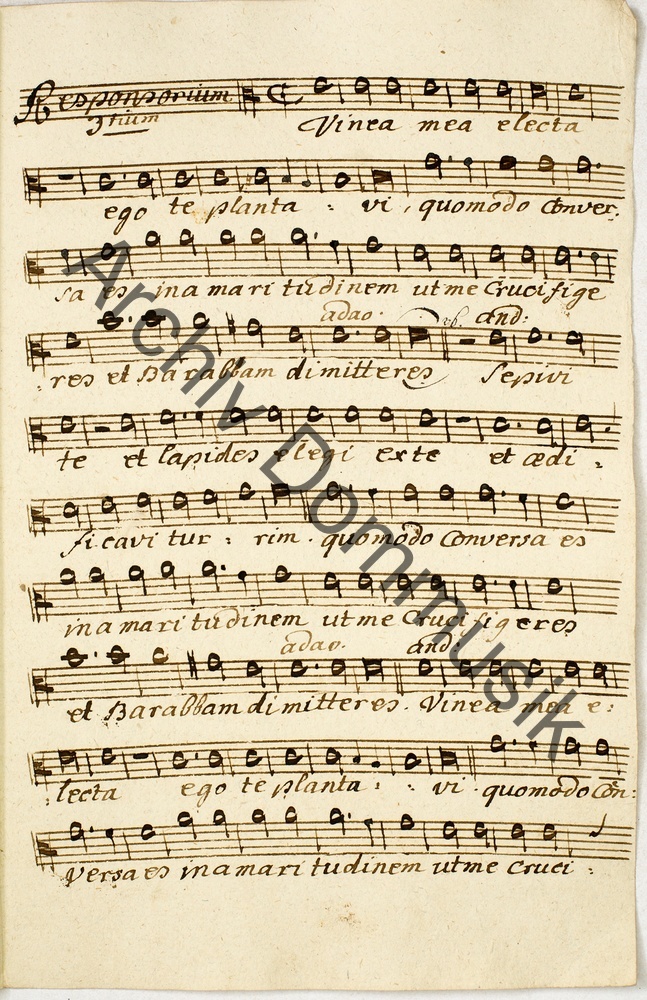 Responsorium
3tium
Vinea mea electa
ego te planta : vi , quomodo Conver:
sa es in a mari tudinem ut me Crucifige
adao. and:
: res et Barabbam dimitteres Sepivi
te et lapides elegi ex te et ædi :
ficavi tur : rim . quomodo Conversa es
in a mari tudinem ut me Crucifigeres
adao. and:
et Barabbam dimitteres. Vinea mea e:
:lecta ego te planta : : vi . quomodo Con:
versa es in a mari tudinem ut me Cruci :
Archiv Dommusik